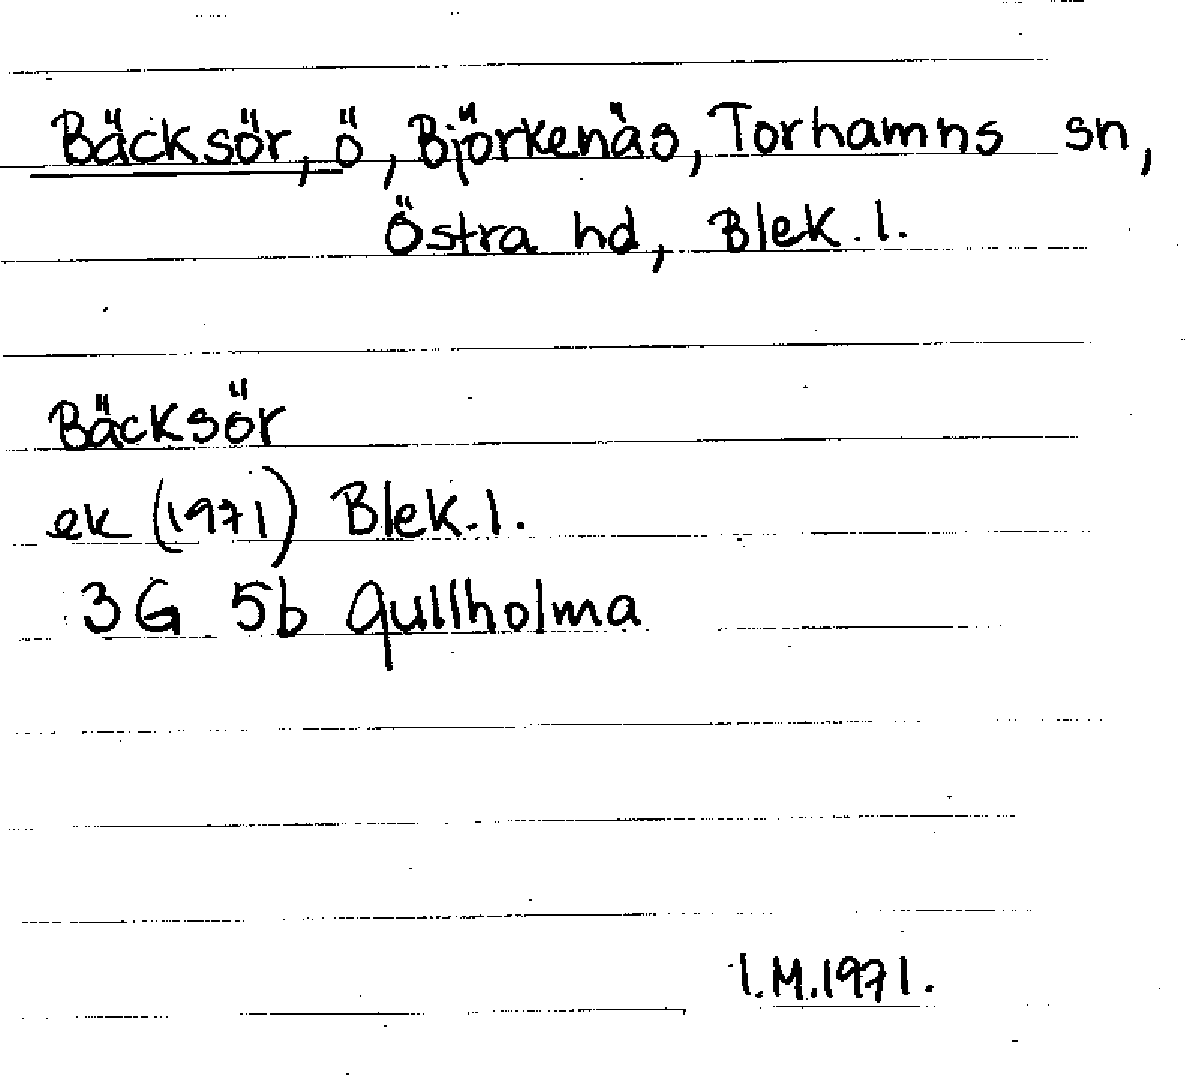 Bäcksör, ö, Björkenäs, Torhamns sn,
Östra hd, Blek. l.
Bäcksör
ek (1971) Blek. l.
3G 5b Gullholma
I.M.1971.